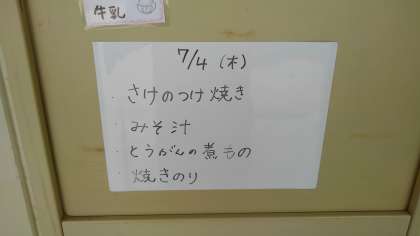 牛乳
7/4 (木)
・さけのつけ焼き
・みそ汁
・とうがんの煮もの
・焼きのり